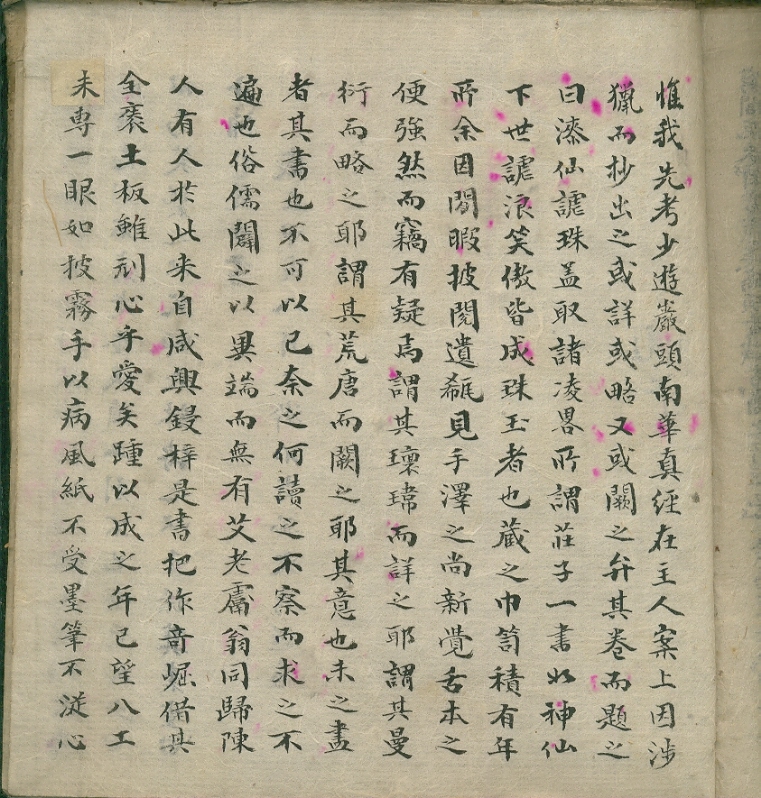 惟我先考少遊巖頭南華真經在主人案上因涉
獵而抄出之或詳或略又或闕之弁其卷而題之
曰漆仙謔珠盖取諸凌畧所謂莊子一書如神仙
下世謔浪笑傲皆成珠玉者也蔵之巾笥積有年
所余因閒暇披閱遺觚見手澤之尚新覺舌本之
便強然而竊有疑焉謂其瓌瑋而詳之耶謂其曼
衍而略之耶謂其荒唐而闕之耶其意也未之盡
者其書也不可以已奈之何讀之不察而求之不
遍也俗儒闢之以異端而無有艾老鬳翁同歸陳
人有人於此来自咸興鋟梓是書把作竒崛借其
全袠土板雖刓心乎愛矣踵以成之年已望八工
未専一眼如披霧手以病風紙不受墨筆不従心